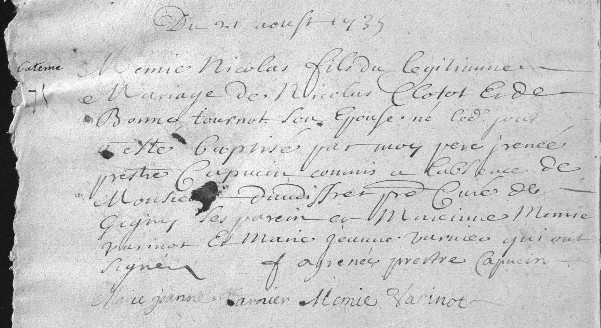 Du 21 aoust 1735
Memie Nicolas fils du legitimme
Mariage de Nicolas Clozot Et de
Bonne tournot son Epouse ne led jour
a este baptisé par moy pere jrenée
prestre Capucin commis a labsence de
Monsieur daudiffret pre Curé de
Gigny ses parein et Mareinne Memie
Varinot Et Marie jeanne varnier qui ont
signée f jrenée prestre Capucin
Marie jeanne varnier Memie Varinot